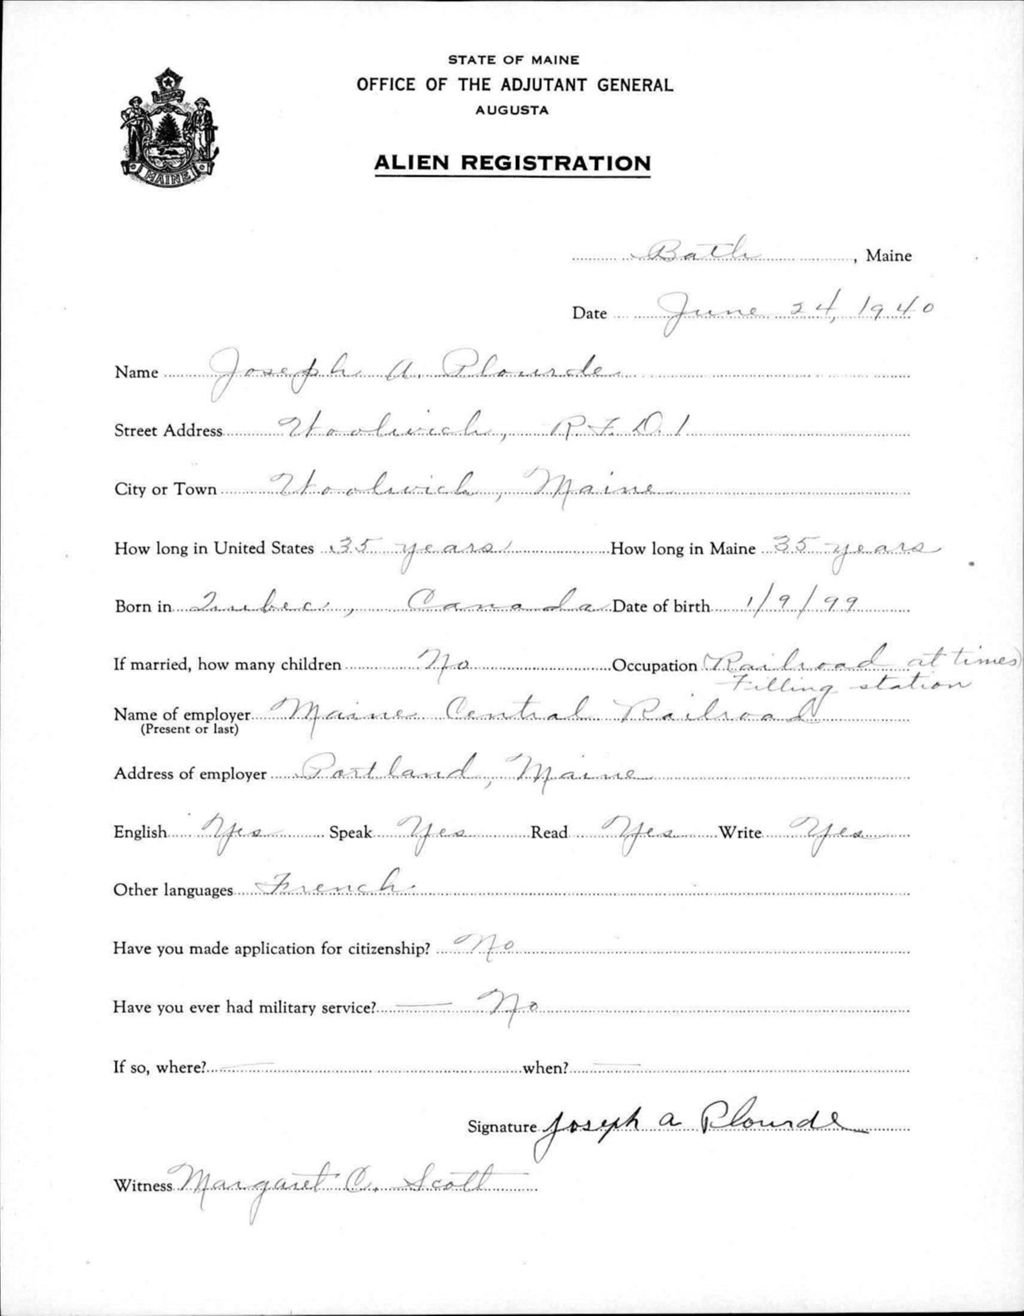 STATE OF MAINE
OFFICE OF THE ADJUTANT GENERAL
AUGUSTA
ALIEN REGISTRATION
MAINE
Bath, Maine
Date June 24, 1940
Name Joseph A. Plourde
Street Address Woolwich, R.F.D. 1
City or Town Woolwich, Maine
How long in United States 35 years How long in Maine 35 years
Born in Qubec, Canada Date of birth 1/9/99
If married, how many children No Occupation Railroad at times
Filling station
Name of employer Maine Central Railroad
(Present or last)
Address of employer Portland, Maine
English Yes Speak Yes Read Yes Write Yes
Other languages French
Have you made application for citizenship? No
Have you ever had military service? — No
If so, where? — when? —
Signature Joseph A Plourde
Witness Margaret C. Scott